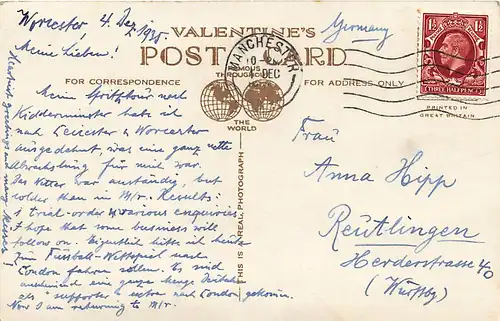 Worcester, 4. Dez. 1935.
Germany
VALENTINE'S
POST CARD
FAMOUS
THROUGHOUT
THE
WORLD
FOR CORRESPONDENCE
FOR ADDRESS ONLY
MANCHESTER
DEC
1½ 1½
THREE HALF PENCE
PRINTED IN
GREAT BRITAIN
THIS IS A REAL PHOTOGRAPH
Meine Lieben!
Meine Spritztour nach
Kidderminster hab ich
nach Leicester & Worcester
ausgedehnt, was eine ganz nette
Abwechslung für mich war.
Das Wetter war anständig, but
colder than in M/r. Results:
1 trial-order & various enquiries.
I hope that some business will
follow on. Eigentlich hätte ich heute
zum Fussball-Wettspiel nach
London fahren sollen. Es sind
annehmend eine ganze Menge
als "supporter" extra nach London gekommen.
Now I am returning to M/r.
Herzlichst greetings and many kisses!
Frau
Anna Hipp
Reutlingen
Herderstrasse 40
(Württbg)